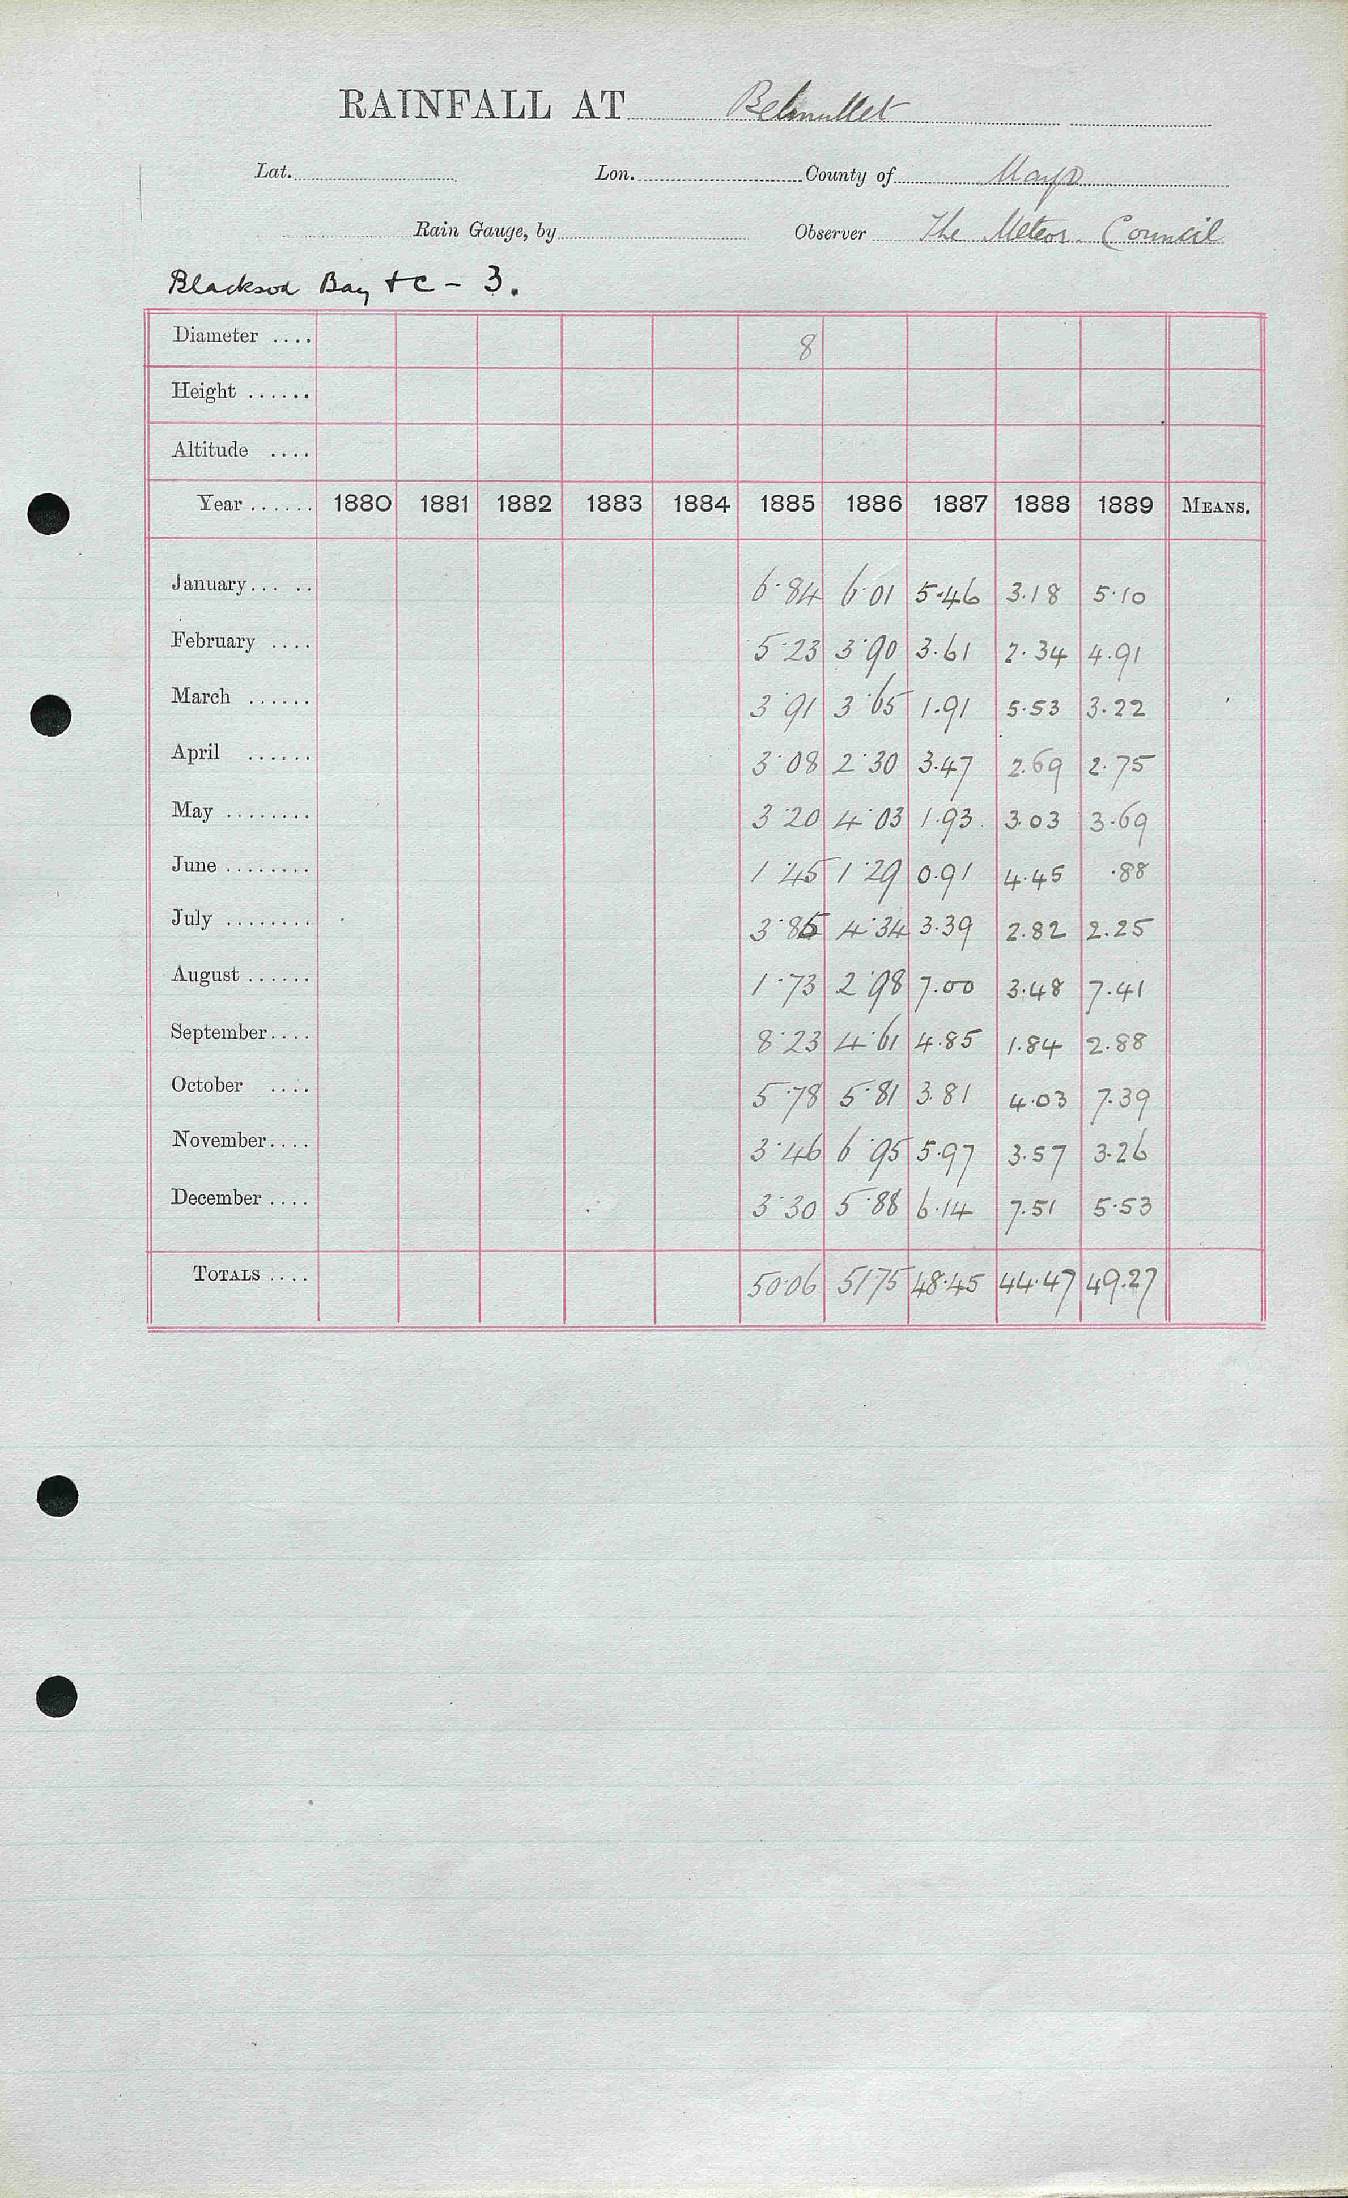 RAINFALL AT Belmullet
Lat. Lon. County of Mayo
Rain Gauge, by Observer The Meteor. Council
Blacksod Bay + C - 3.
Diameter .... 8
Height ......
Altitude ....
Year ...... 1880 1881 1882 1883 1884 1885 1886 1887 1888 1889 MEANS.
January... .. 6.84 6.01 5.46 3.18 5.10
February .... 5.23 3.90 3.61 2.34 4.91
March ...... 3.91 3.65 1.91 5.53 3.22
April ...... 3.08 2.30 3.47 2.69 2.75
May ........ 3.20 4.03 1.93 3.03 3.69
June ........ 1.45 1.29 0.91 4.45 .88
July ........ 3.85 4.34 3.39 2.82 2.25
August ...... 1.73 2.98 7.00 3.48 7.41
September.... 8.23 4.61 4.85 1.84 2.88
October .... 5.78 5.81 3.81 4.03 7.39
November.... 3.46 6.95 5.97 3.57 3.26
December .... 3.30 5.88 6.14 7.51 5.53
TOTALS .... 50.06 51.75 48.45 44.47 49.27